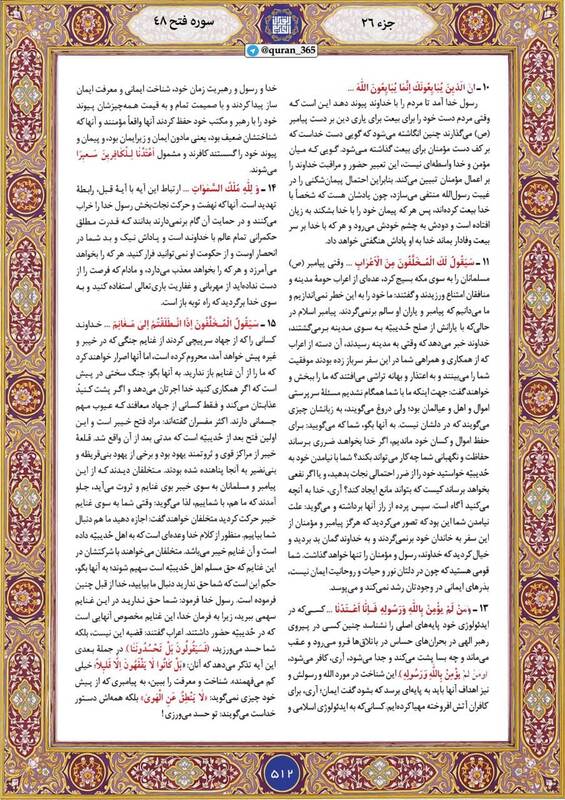 جزء ۲۶
سوره فتح ۴۸
@quran_365
۱۰ ـ انَّ الَّذِینَ یُبَایِعُونَكَ إِنَّمَا یُبَایِعُونَ اللَّهَ ...
رسول خدا آمد تا مردم را با خداوند پیوند دهد این است که
وقتی مردم دست خود را برای بیعت برای یاری دین بر دست پیامبر
(ص) می‌گذارند چنین انگاشته می‌شود که گویی دست خداست که
بر کف دست مؤمنان برای بیعت گذاشته می‌شود. گویی که میان
مؤمن و خدا واسطه‌ای نیست، این تعبیر حضور و مراقبت خداوند را
بر اعمال مؤمنان تبیین می‌کند. بنابراین احتمال پیمان‌شکنی را در
غیبت رسول‌الله منتفی می‌سازد، چون یادشان هست که شخصاً با
خدا بیعت کرده‌اند، پس هر که پیمان خود را با خدا بشکند به زیان
افتاده است و دودش به چشم خودش می‌رود و هر که با خدا بر سر
بیعت وفادار بماند خدا به او پاداش هنگفتی خواهد داد.
۱۱ ـ سَیَقُولُ لَكَ الْمُخَلَّفُونَ مِنَ الْأَعْرَابِ ... وقتی پیامبر (ص)
مسلمانان را به سوی مکه بسیج کرد، عده‌ای از اعراب حومۀ مدینه و
منافقان امتناع ورزیدند و گفتند: ما خود را به این خطر نمی‌اندازیم و
ما می‌دانیم که پیامبر و یاران او سالم برنمی‌گردند. پیامبر اسلام در
حالی‌که با یارانش از صلح حُدیبیّه به سوی مدینه برمی‌گشتند،
خداوند خبر می‌دهد که وقتی به مدینه رسیدند، آن دسته از اعراب
که از همکاری و همراهی شما در این سفر سرباز زده بودند موفقیت
شما را می‌بینند و به اعتذار و بهانه تراشی می‌افتند که ما را ببخش و
خواهند گفت: جهت اینکه ما با شما همگام نشدیم مسئلۀ سرپرستی
اموال و اهل و عیالمان بود؛ ولی دروغ می‌گویند، به زبانشان چیزی
می‌گویند که در دلشان نیست. به آنها بگو، شما که می‌گویید: برای
حفظ اموال و کسان خود ماندیم، اگر خدا بخواهد ضرری برساند
حفاظت و نگهبانی شما چه کار می‌تواند بکند؟ شما با نیامدن خود به
حُدیبیّه خواستید خود را از ضرر احتمالی نجات بدهید، و یا اگر نفعی
بخواهد برساند کیست که بتواند مانع ایجاد کند؟ آری، خدا به آنچه
می‌کنید آگاه است. سپس پرده از راز آنها برداشته و می‌گوید: علت
نیامدن شما این بود که تصور می‌کردید که هرگز پیامبر و مؤمنان از
این سفر به خاندان خود برنمی‌گردند و به خداوند گمان بد بردید و
خیال کردید که خداوند، رسول و مؤمنان را تنها خواهد گذاشت. شما
قومی هستید که چون در دلتان نور و حیات و روحانیت ایمان نیست،
بذرهای ایمانی در وجودتان رشد نمی‌کند و می‌پوسد.
۱۳ ـ وَمَنْ لَمْ یُؤْمِنْ بِاللَّهِ وَرَسُولِهِ فَإِنَّا أَعْتَدْنَا ... کسی‌که در
ایدئولوژی خود پایه‌های اصلی را نشناسد چنین کسی در پیروی
رهبر الهی در بحران‌های حساس در باتلاق‌ها فرو می‌رود و عقب
می‌ماند و چه بسا پشت می‌کند و جدا می‌شود، آری، کافر می‌شود،
(وَمَنْ لَمْ یُؤْمِنْ بِاللَّهِ وَرَسُولِهِ). این شناخت در مورد الله و رسولش و
نیز اهداف آنها باید به پایه‌ای برسد که بشود گفت ایمان؛ آری، برای
کافران آتش افروخته مهیا کرده‌ایم. کسانی‌که به ایدئولوژی اسلامی و
خدا و رسول و رهبریت زمان خود، شناخت ایمانی و معرفت ایمان
ساز پیدا کردند و با صمیمت تمام و به قیمت همه‌چیزشان پیوند
خود را با رهبر و مکتب خود حفظ کردند آنها واقعاً مؤمنند و آنها که
شناختشان ضعیف بود، یعنی مادون ایمان و زیرایمان بود، و پیمان و
پیوند خود را گسستند کافرند و مشمول أَعْتَدْنَا لِلْكَافِرِینَ سَعِیرًا
می‌شوند.
۱۴ ـ وَ لِلَّهِ مُلْكُ السَّمَوَاتِ ... ارتباط این آیه با آیۀ قبل، رابطۀ
تهدید است. آنها که نهضت و حرکت نجات‌بخش رسول خدا را خراب
می‌کنند و در حمایت آن گام برنمی‌دارند بدانند که قدرت مطلق
حکمرانی تمام عالم با خداوند است و پاداش نیک و بد شما در
انحصار اوست و از حکومت او نمی توانید فرار کنید. هر که را بخواهد
می‌آمرزد و هر که را بخواهد معذب می‌دارد، و مادام که فرصت را از
دست نداده‌اید از مهربانی و غفاریت باری‌تعالی استفاده کنید و به
سوی خدا برگردید که راه توبه باز است.
۱۵ ـ سَیَقُولُ الْمُخَلَّفُونَ إِذَا انْطَلَقْتُمْ إِلَى مَغَانِمَ ... خداوند
کسانی را که از جهاد سرپیچی کردند از غنایم جنگی که در خیبر و
غیره پیش خواهد آمد، محروم کرده است، اما آنها اصرار خواهند کرد
که ما را از آن غنایم باز ندارید. به آنها بگو: جنگ سختی در پیش
است که اگر همکاری کنید خدا اجرتان می‌دهد و اگر پشت کنید
عذابتان می‌کند و فقط کسانی از جهاد معافند که عیوب مهم
جسمانی دارند. اکثر مفسران گفته‌اند: مراد فتح خیبر است و این
اولین فتح بعد از حُدیبیّه است که مدتی بعد از آن واقع شد. قلعۀ
خیبر از مراکز قوی و ثروتمند یهود بود و برخی از یهود بنی‌قریظه و
بنی‌نضیر به آنجا پناهنده شده بودند. متخلفان دیدند که از این
پیامبر و مسلمانان به سوی خیبر بوی غنایم و ثروت می‌آید، جلو
آمدند که ما هم، با شماییم، لذا می‌گوید: وقتی شما به سوی غنایم
خیبر حرکت کردید متخلفان خواهند گفت: اجازه دهید ما هم دنبال
شما بیاییم. منظور از کلام خدا وعده‌ای است که به اهل حُدیبیّه داده
است و آن غنایم خیبر می‌باشد. متخلفان می‌خواهند با شرکتشان در
این غنایم که حق مسلم اهل حُدیبیّه است سهیم شوند؛ به آنها بگو،
حکم این است که شما حق ندارید دنبال ما بیایید، خدا از قبل چنین
فرموده است. رسول خدا فرمود: شما حق ندارید در این غنایم
سهمی ببرید، زیرا به فرمان خدا، این غنایم مخصوص آنهایی است
که در حُدیبیّه حضور داشتند. اعراب گفتند: قضیه این نیست، بلکه
شما حسد می‌ورزید، (فَسَیَقُولُونَ بَلْ تَحْسُدُونَنَا). در جملۀ بعدی
این آیه تذکر می‌دهد که آنان: «بَلْ كَانُوا لَا یَفْقَهُونَ إِلَّا قَلِیلًا؛ خیلی
کم می‌فهمند». شناخت و معرفت را ببین، به پیامبری که از پیش
خود چیزی نمی‌گوید: «لَا یَنْطِقُ عَنِ الْهَوَىٰ» بلکه همه‌اش دستور
خداست می‌گویند: تو حسد می‌ورزی!
۵۱۲